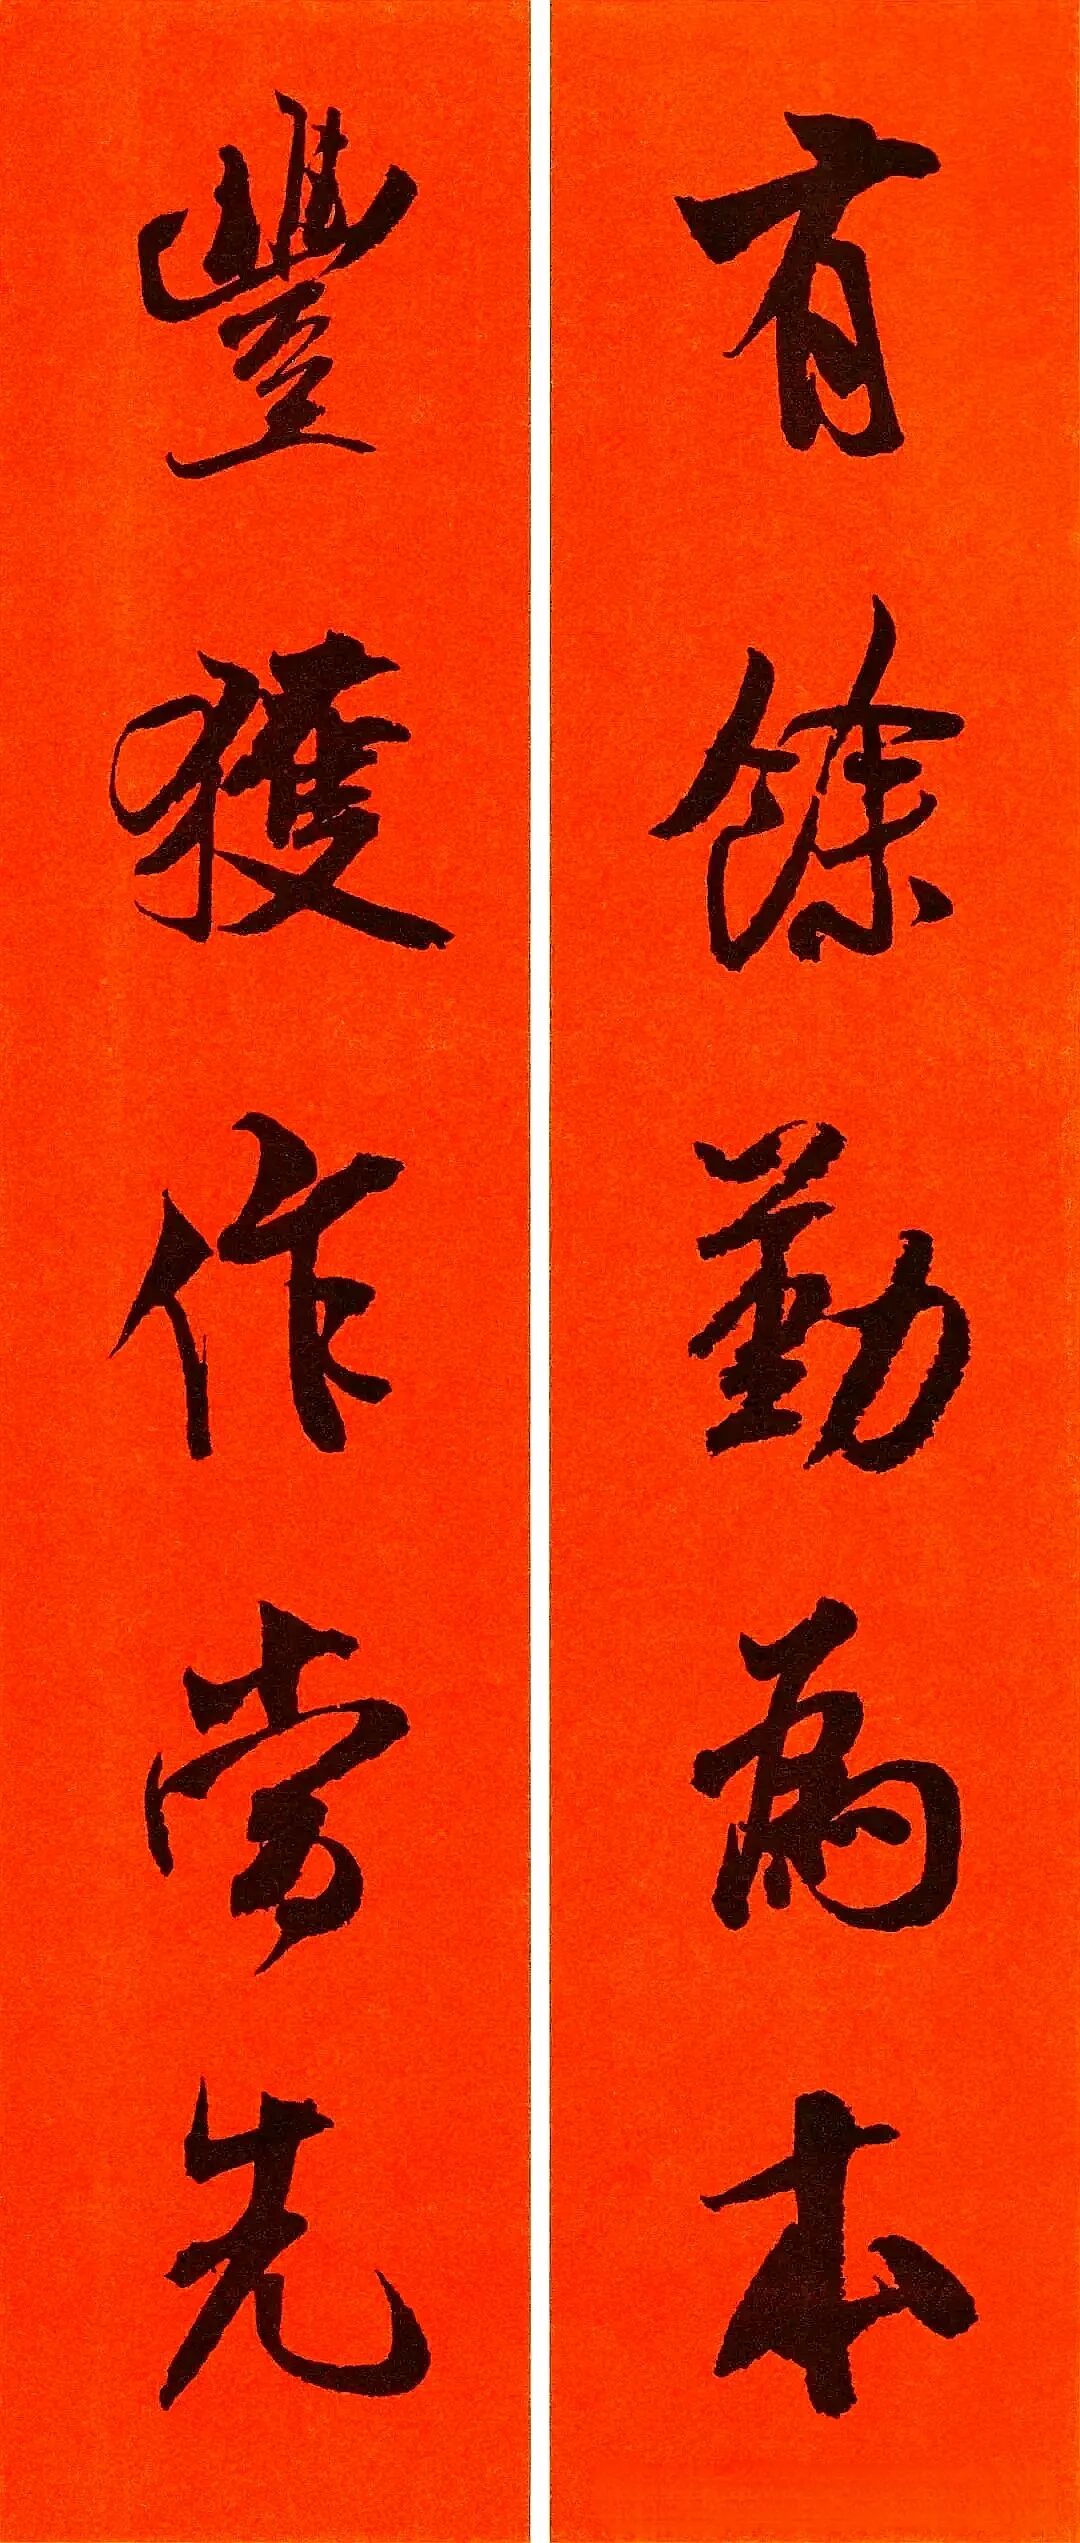 有餘勤為本
豐獲作勞先